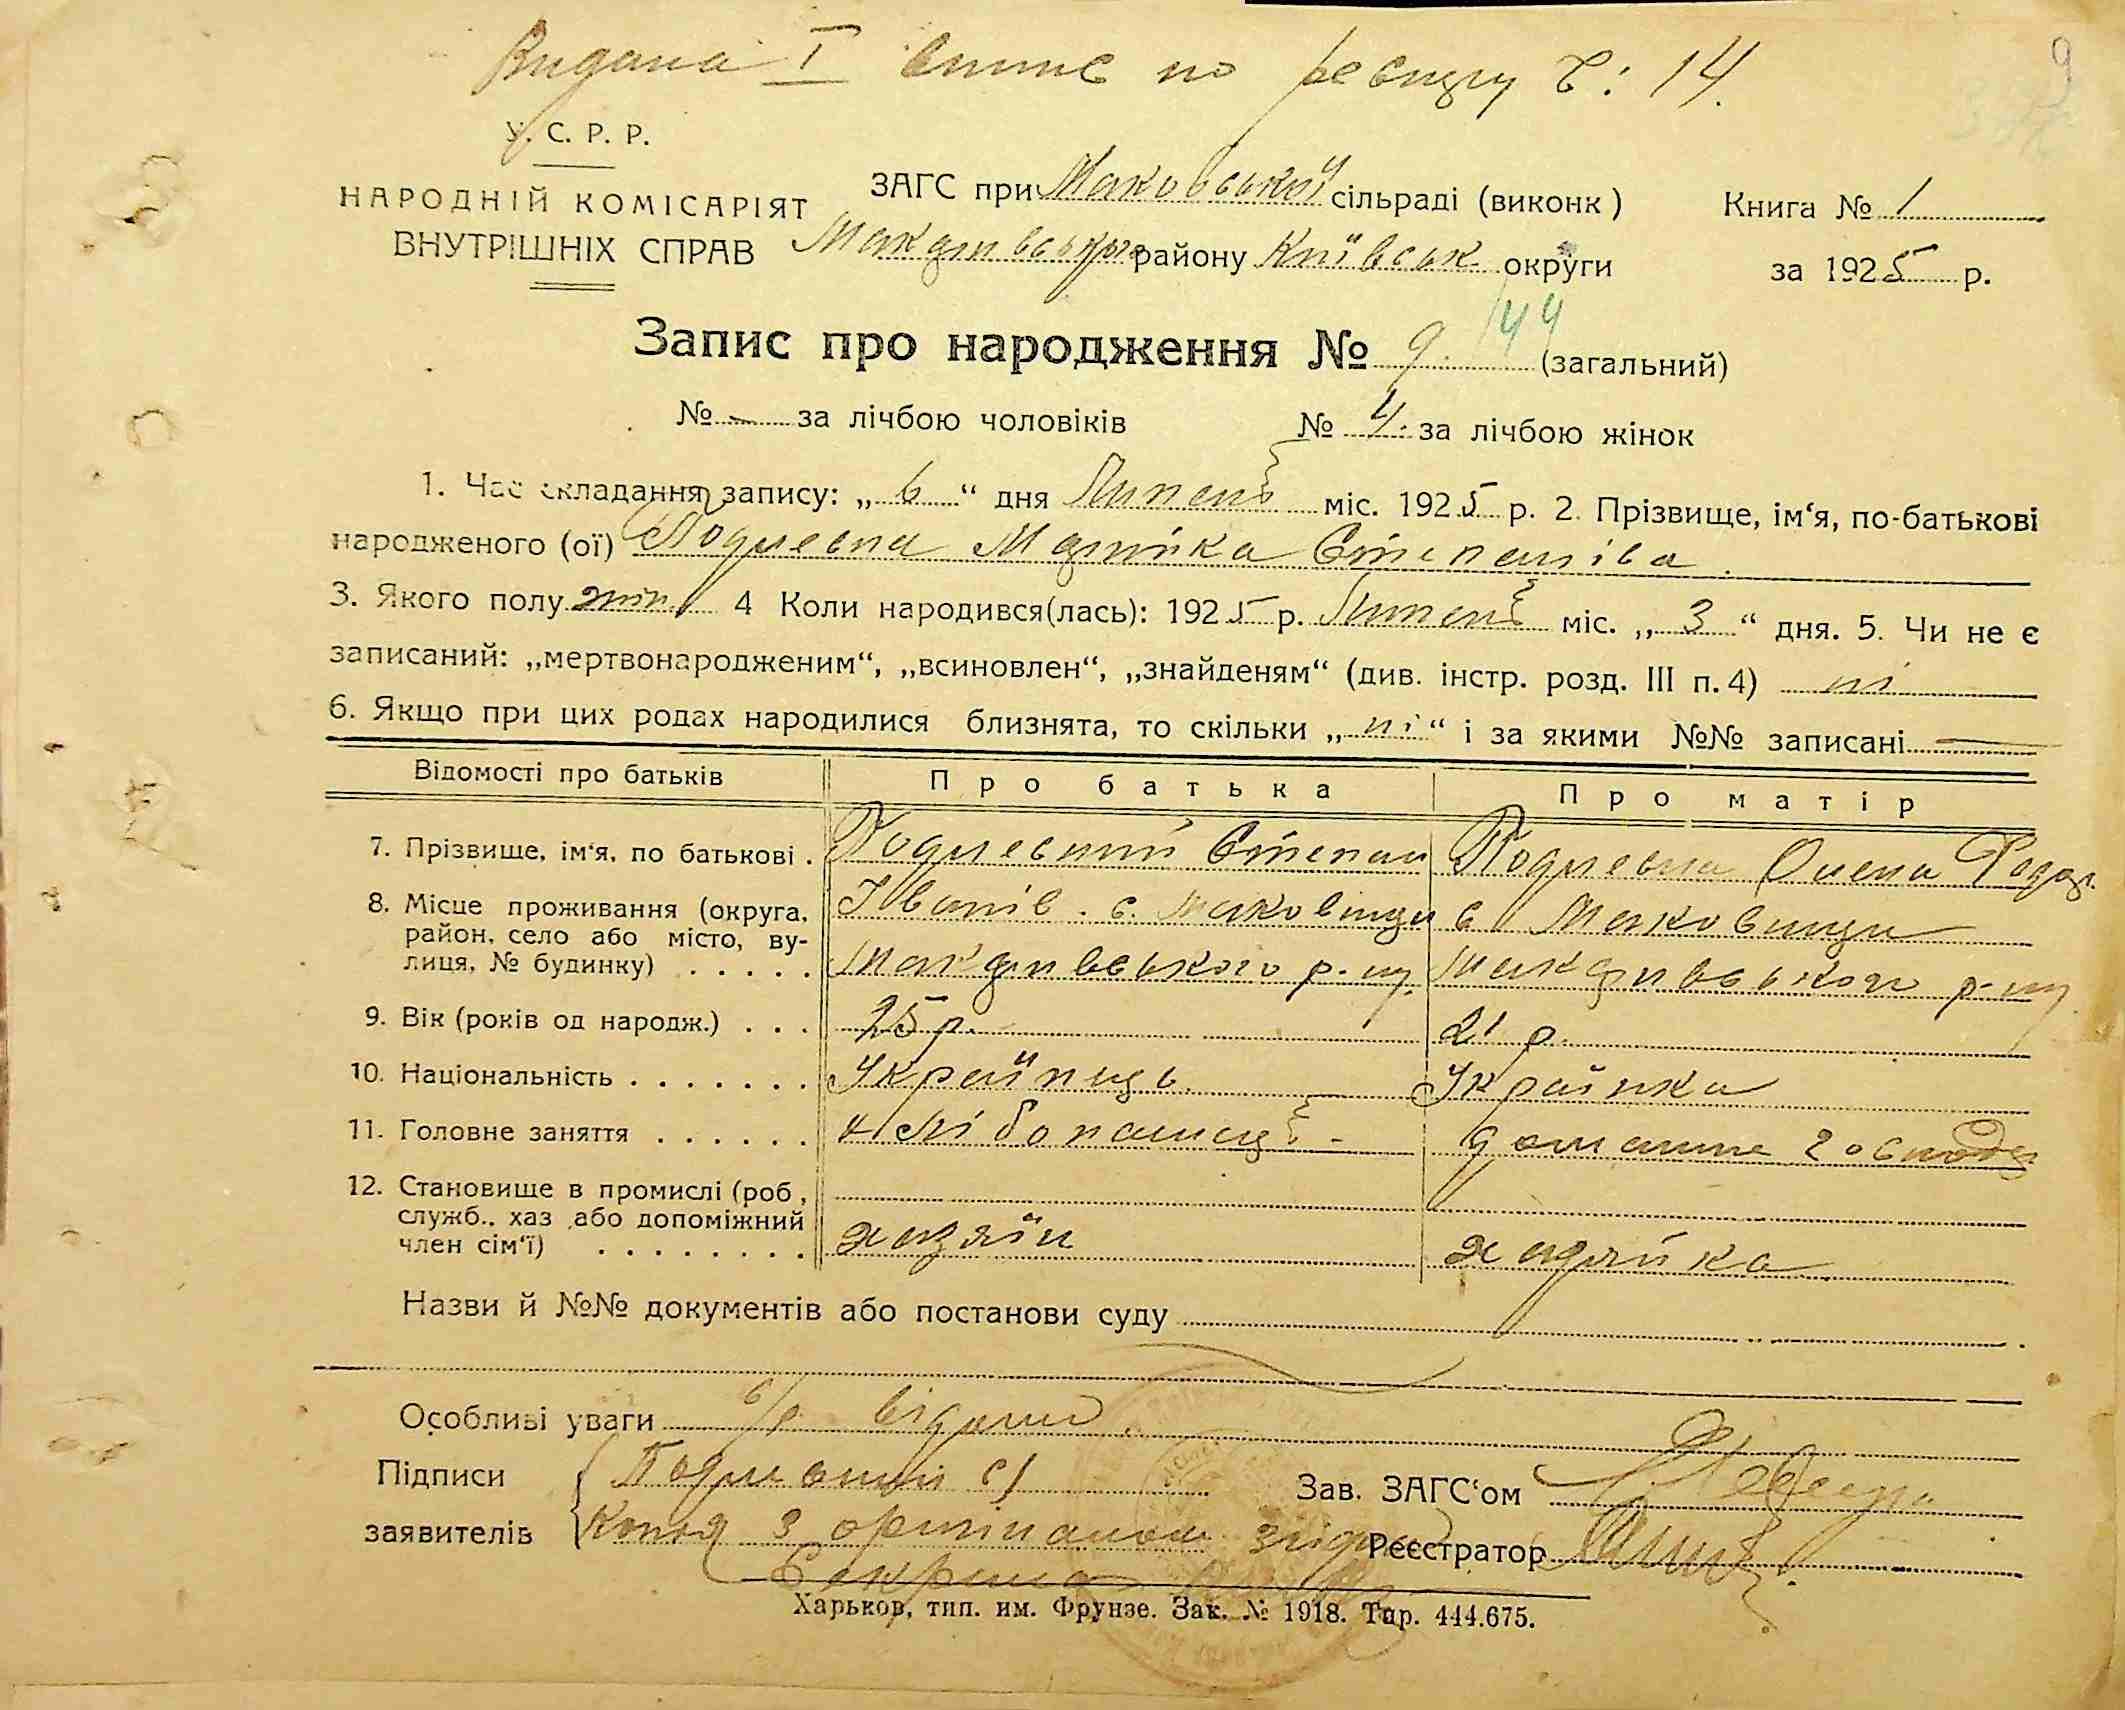 Видана I випис по реєстру ч: 14.
9
У. С. Р. Р.
НАРОДНІЙ КОМІСАРІЯТ
ВНУТРІШНІХ СПРАВ
ЗАГС при Маковській сільраді (виконк)
Макарівського району Київськ. округи
Книга № 1
за 1925 р.
144
Запис про народження № 9. (загальний)
№ — за лічбою чоловіків № 4. за лічбою жінок
1. Час складання запису: „ 6 “ дня Липень міс. 1925 р. 2. Прізвище, ім‘я, по-батькові
народженого (ої) Марійка Степанівa.
3. Якого полу жін. 4 Коли народився(лась): 1925 р. Липень міс. „ 3 “ дня. 5. Чи не є
записаний: „мертвонародженим“, „всиновлен“, „знайденям“ (див. інстр. розд. III п. 4) ні
6. Якщо при цих родах народилися близнята, то скільки „ ні “ і за якими №№ записані —
Відомості про батьків Про батька Про матір
7. Прізвище, ім‘я, по батькові . Степан Олена Федор.
8. Місце проживання (округа, Іванів. с. Маковищи с Маковищи
район, село або місто, ву-
лиця, № будинку) . . . . . Макарівського р-ну. Макарівського р-ну
9. Вік (років од народж.) . . . 25 р. 21 р.
10. Національність . . . . . . . Українць. Українка
11. Головне заняття . . . . . . хлібопашець - домашнє господ.
12. Становище в промислі (роб,
служб., хаз ,або допоміжний
член сім‘ї) . . . . . . . . хазяїн хазяйка
Назви й №№ документів або постанови суду
Особливі уваги
Підписи
заявителів Копія з оригіналом згідна
Секрет
Зав. ЗАГС‘ом
Реєстратор
Харьков, тип. им. Фрунзе. Зак. № 1918. Тир. 444.675.